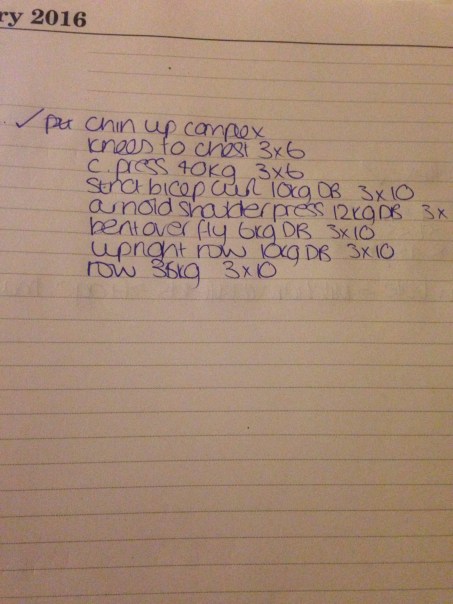 ry 2016
✓ pu chin up complex
knees to chest 3x6
c. press 40kg 3x6
strict bicep curl 10kg DB 3x10
arnold shoulder press 12kg DB 3x
bent over fly 6kg DB 3x10
upright row 10kg DB 3x10
row 35kg 3x10